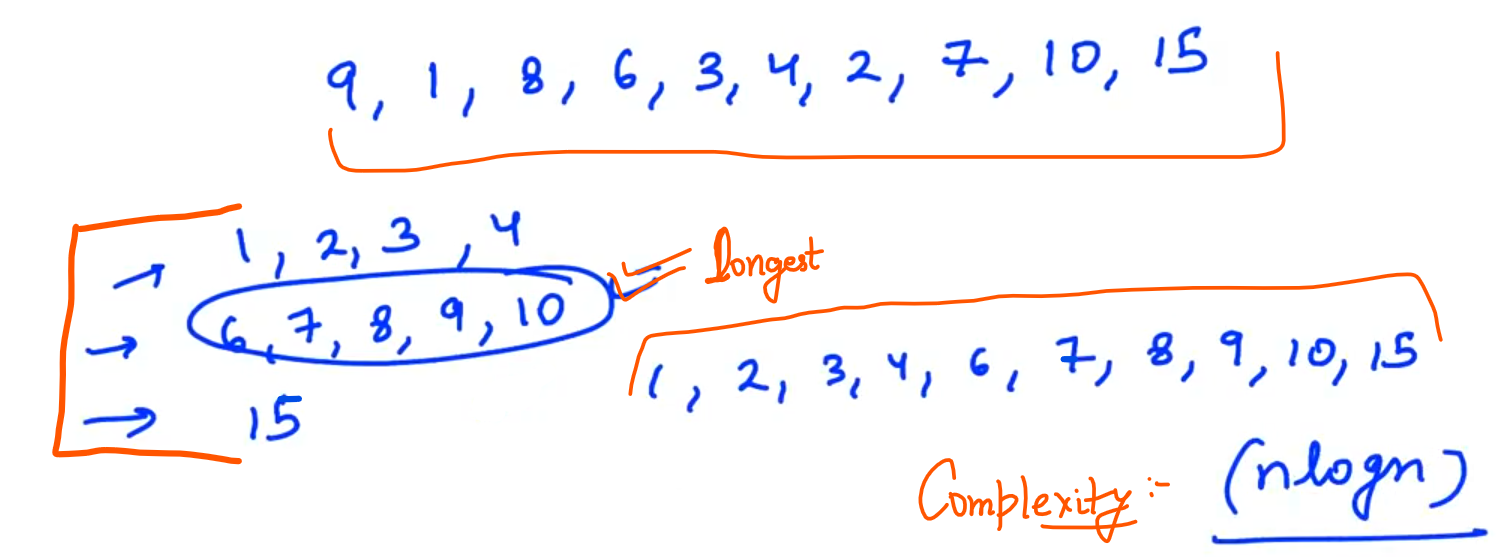 9, 1, 8, 6, 3, 4, 2, 7, 10, 15
1, 2, 3, 4
6, 7, 8, 9, 10
Longest
15
1, 2, 3, 4, 6, 7, 8, 9, 10, 15
Complexity :- (nlogn)